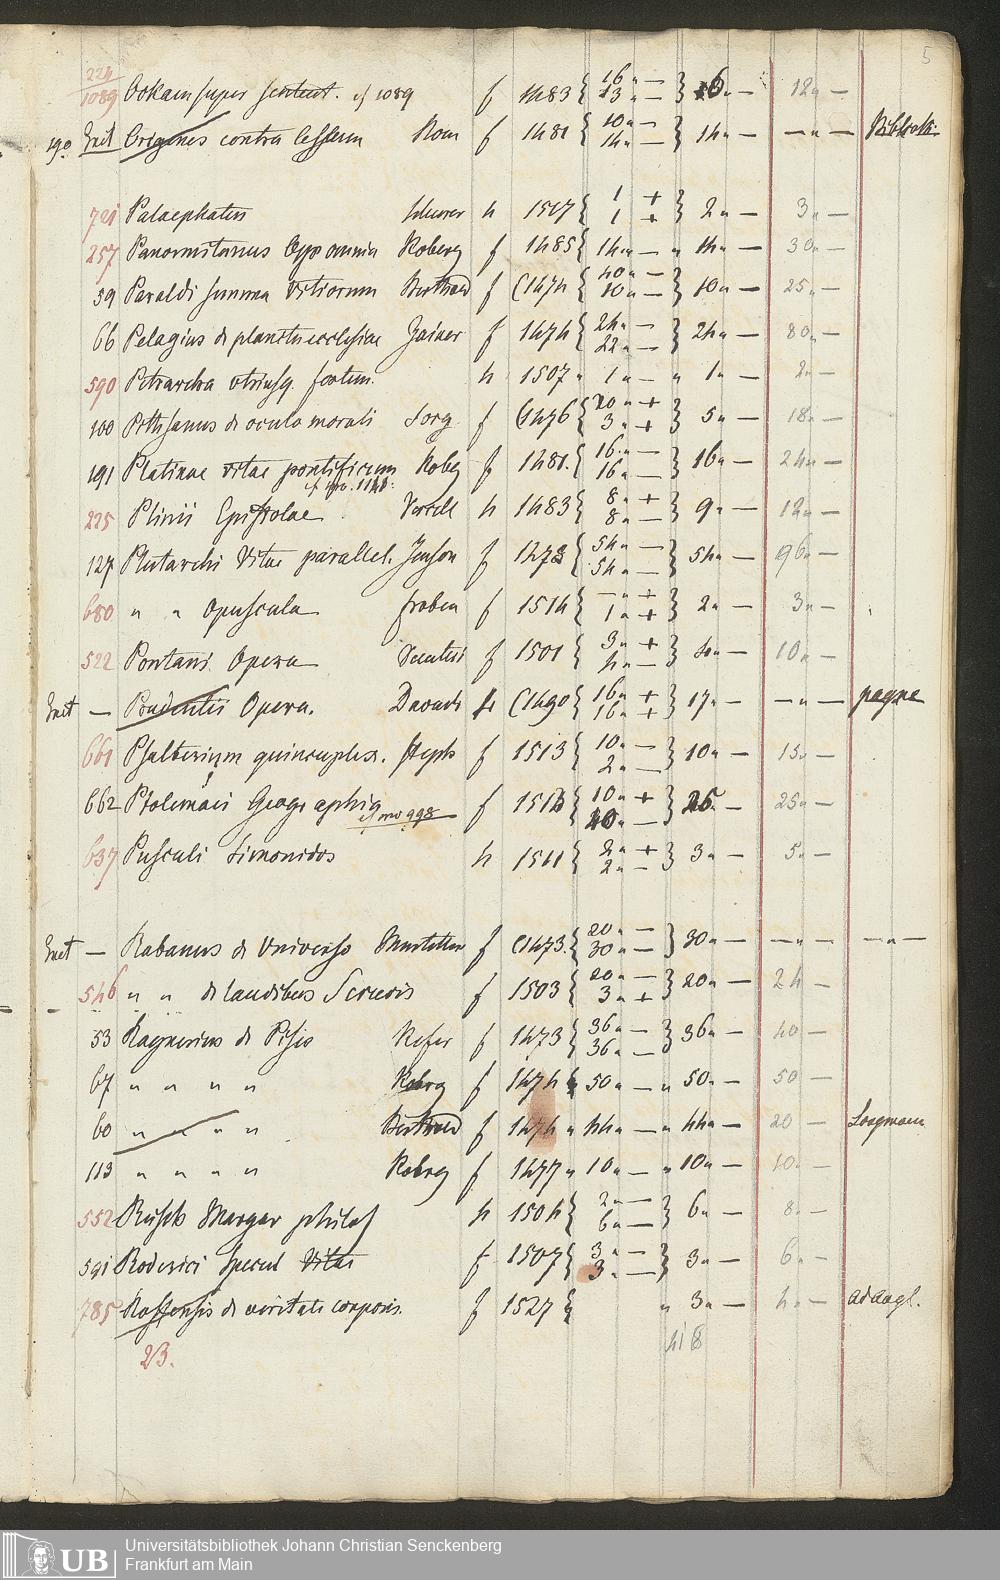 5
224
1089 Ockam super sentent. cf 1089 f 1483 { 16 „ — 13 „ — } 16 „ — 12 „ —
190 Exit Origenes contra Celsum Rom f 1481 { 10 „ — 14 „ — } 14 „ — — „ — Biblioth.
721 Palaephatus Schurer 4 1517 { 1 + 1 + } 2 „ — 3 „ —
257 Panormitanus Opp omnia Koberg f 1485 { 14 „ — „ 14 „ — 30 „ —
59 Paraldi summa Vitiorum Berthold f (1474 { 40 „ — 10 „ — } 10 „ — 25 „ —
66 Pelagius de planctu ecclesiae Zainer f 1474 { 24 „ — 22 „ — } 24 „ — 80 „ —
590 Petrarcha utriusq. fortun. 4 1507 „ 1 „ — „ 1 „ — 2 „ —
100 Pethsanus de oculo morali Sorg f (1476 { 20 „ + 3 „ + } 5 „ — 18 „ —
191 Platinae vitae pontificum Kobg f 1481. { 16 „ — 16 „ — } 16 „ — 24 „ —
cf no. 1148.
225 Plinii Epistolae 4 1483 { 8 „ + 8 „ — } 9 „ — 12 „ —
127 Plutarchi Vitae parallel. Jenson f 1478 { 54 „ — 54 „ — } 54 „ — 96 „ —
680 „ „ Opuscula Froben f 1514 { — „ + 1 „ + } 2 „ — 3 „ —
522 Pontani Opera f 1501 { 3 „ + 4 „ — } 4 „ — 10 „ —
Exit — Prudentii Opera. Davent 4 (1490 { 16 „ + 16 „ + } 17 „ — — „ — payne
661 Psalterium quincuplex. Steph f 1513 { 10 „ — 2 „ — } 10 „ — 15 „ —
662 Ptolemaei Geographia f 1513 { 10 „ + 20 „ — } 25 „ — 25 „ —
cf no 998
637 Pusculi Simonidos 4 1511 { 2 „ + 2 „ — } 3 „ — 5 „ —
Exit — Rabanus de Universo f (1473. { 20 „ — 30 „ — } 30 „ — — „ — — „ —
546 „ „ de laudibus S crucis f 1503 { 20 „ — 3 „ + } 20 „ — 24 —
53 Raynerius de Pisis Kefer f 1473 { 36 „ — 36 „ — } 36 „ — 40 —
67 „ „ „ „ Kobrg f 1474 „ 50 „ — „ 50 „ — 50 —
60 „ „ „ „ Berthold f 1476 „ 44 „ — „ 44 „ — 20 — Longmann
113 „ „ „ „ Kobrg f 1477 „ 10 „ — „ 10 „ — 10 „ —
552 Reisch Margar philos 4 1504 { 2 „ — 6 „ — } 6 „ — 8 „ —
591 Roderici Specul Vitae f 1507 { 3 „ — 3 „ — } 3 „ — 6 „ —
785 Roffensis de veritate corporis. f 1527 { „ 3 „ — 4 „ — ad Angl.
23. 418
UB Universitätsbibliothek Johann Christian Senckenberg
Frankfurt am Main